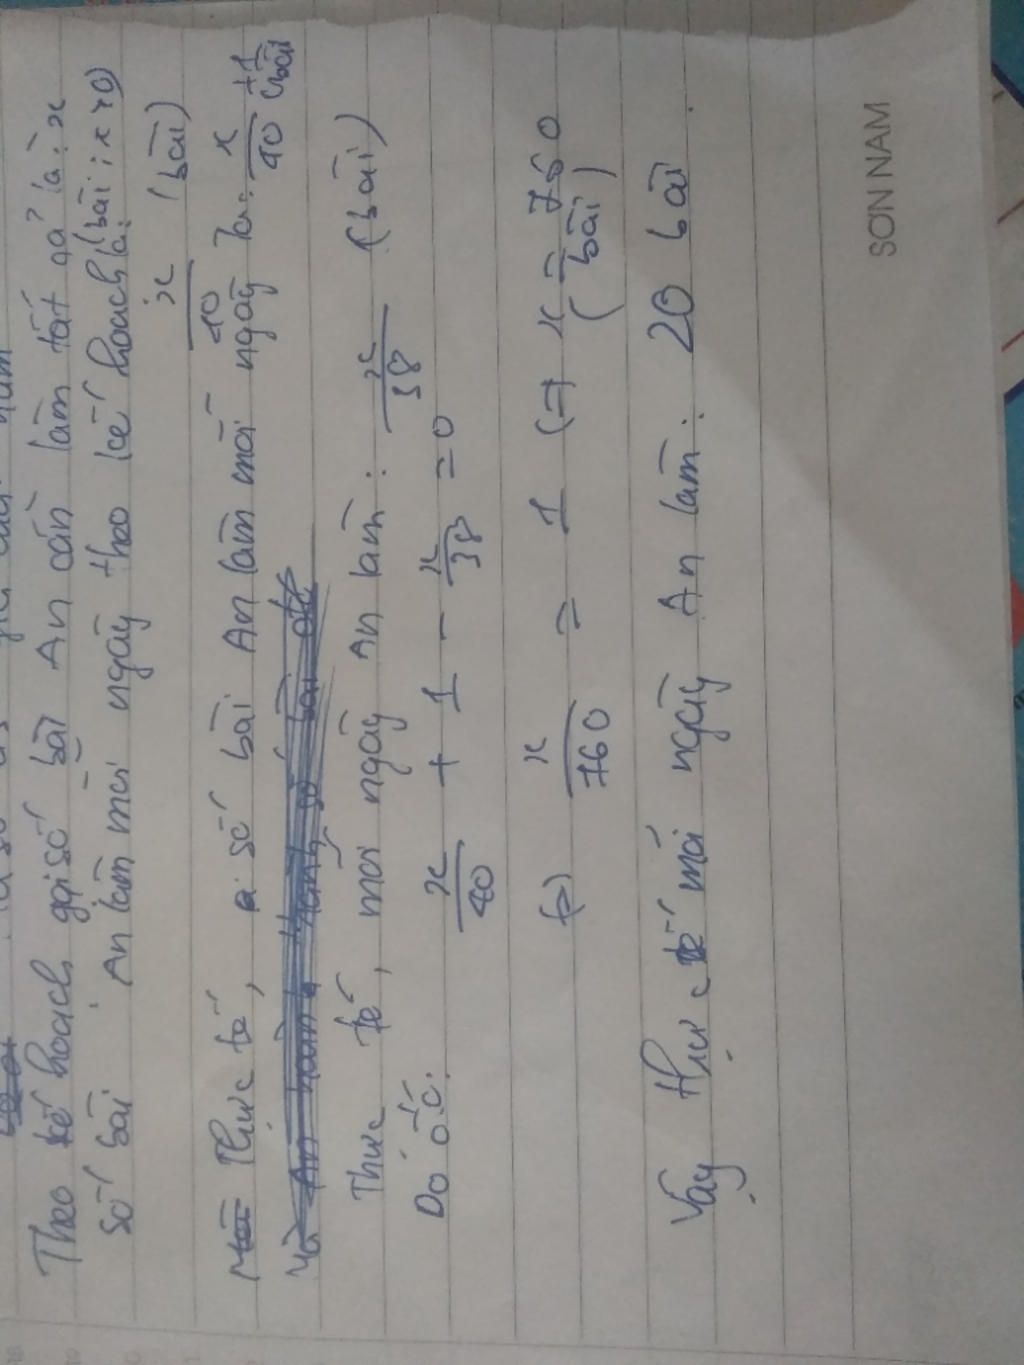 Theo kế hoạch, gọi số bài An cần làm tất cả là: x
(bài; x > 0)
Số bài An làm mỗi ngày theo kế hoạch là:
x/40 (bài)
Thực tế, số bài An làm mỗi ngày là: x/40 + 1 (bài)
Thực tế, mỗi ngày An làm: x/38 (bài)
Do đó:
x/40 + 1 - x/38 = 0
(=) x/760 = 1 (=) x = 760 (bài)
Vậy thực tế mỗi ngày An làm: 20 bài.
SƠN NAM